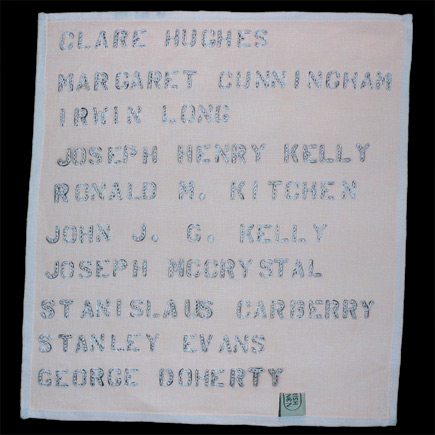 CLARE HUGHES
MARGARET CUNNINGHAM
IRWIN LONG
JOSEPH HENRY KELLY
RONALD M. KITCHEN
JOHN J. G. KELLY
JOSEPH MCCRYSTAL
STANISLAUS CARBERRY
STANLEY EVANS
GEORGE DOHERTY